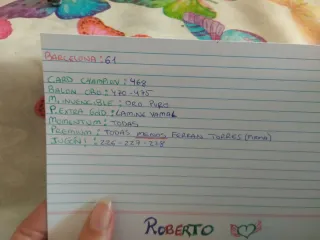 BARCELONA: 61
CARD CHAMPION: 468
BALON ORO: 470-475
M. INVENCIBLE: ORO PURO
P. EXTRA GOD: LAMINE YAMAL
MOMENTUM: TODAS
PREMIUM: TODAS MENOS FERRAN TORRES (MOMU)
JUGÓN!: 226-227-238
ROBERTO